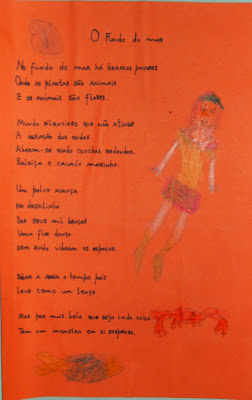 O Fundo do mar
No fundo do mar há brancos pavores
Onde as plantas são animais
E os animais são flores.
Mundo silencioso que não atinge
A agitação das ondas.
Abrem-se rindo conchas redondas.
Baloiça o cavalo marinho.
Um polvo avança
no desalinho
Dos seus mil braços
Uma flor dança
sem ruído vibram os espaços.
Sobre a areia o tempo pois
Leve como um lenço
Mas por mais bela que seja cada coisa
Tem um monstro em si suspenso.